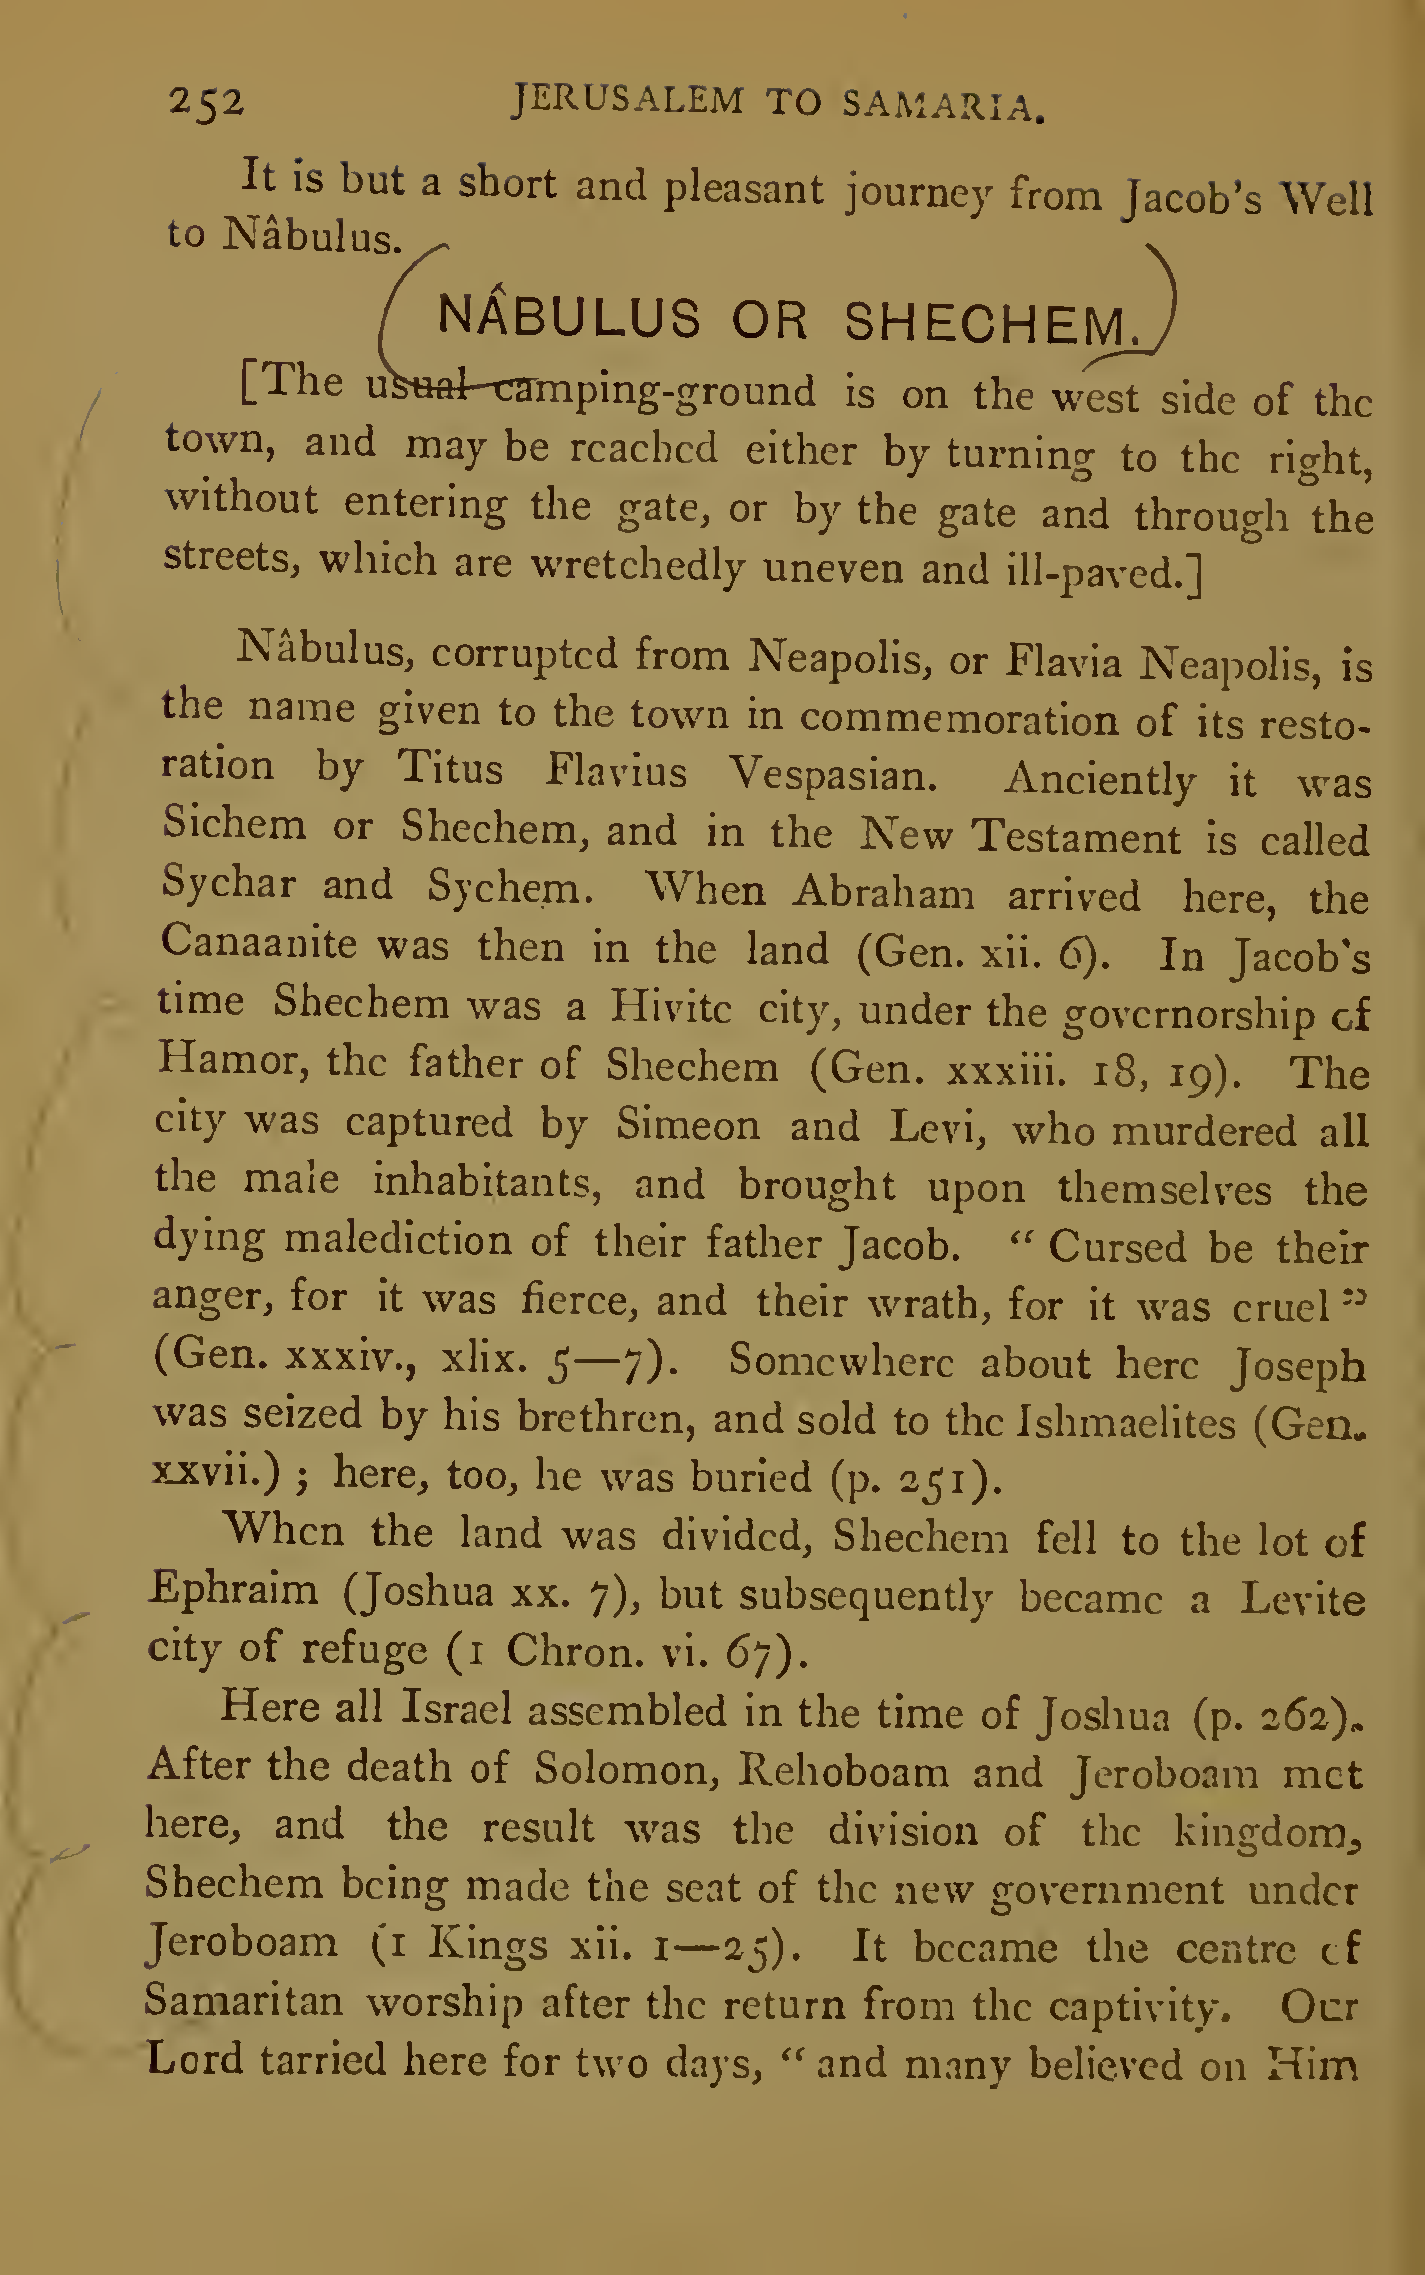 252 JERUSALEM TO SAMARIA.
It is but a short and pleasant journey from Jacob's Well
to Nâbulus.
NÂBULUS OR SHECHEM.
[The usual camping-ground is on the west side of the
town, and may be reached either by turning to the right,
without entering the gate, or by the gate and through the
streets, which are wretchedly uneven and ill-paved.]
Nâbulus, corrupted from Neapolis, or Flavia Neapolis, is
the name given to the town in commemoration of its resto-
ration by Titus Flavius Vespasian. Anciently it was
Sichem or Shechem, and in the New Testament is called
Sychar and Sychem. When Abraham arrived here, the
Canaanite was then in the land (Gen. xii. 6). In Jacob's
time Shechem was a Hivite city, under the governorship of
Hamor, the father of Shechem (Gen. xxxiii. 18, 19). The
city was captured by Simeon and Levi, who murdered all
the male inhabitants, and brought upon themselves the
dying malediction of their father Jacob. "Cursed be their
anger, for it was fierce, and their wrath, for it was cruel"
(Gen. xxxiv., xlix. 5—7). Somewhere about here Joseph
was seized by his brethren, and sold to the Ishmaelites (Gen.
xxvii.) ; here, too, he was buried (p. 251).
When the land was divided, Shechem fell to the lot of
Ephraim (Joshua xx. 7), but subsequently became a Levite
city of refuge (1 Chron. vi. 67).
Here all Israel assembled in the time of Joshua (p. 262).
After the death of Solomon, Rehoboam and Jeroboam met
here, and the result was the division of the kingdom,
Shechem being made the seat of the new government under
Jeroboam (1 Kings xii. 1—25). It became the centre of
Samaritan worship after the return from the captivity. Our
Lord tarried here for two days, "and many believed on Him